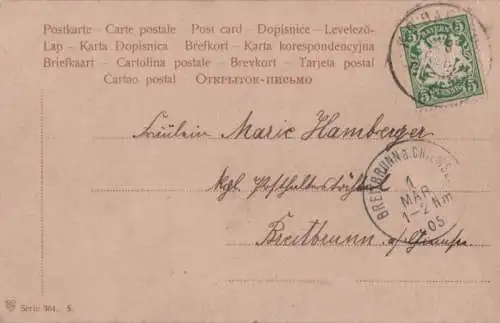 Postkarte – Carte postale – Post card – Dopisnice – Levelező-
Lap – Karta Dopisnica – Brefkorl – Karta korespondencyjna
Briefkaart – Cartolina postale – Brevkort – Tarjeta postal
Cartao postal – Открыток-письмо
5 BAYERN 5
5 5
Fräulein Marie Hamberger
kgl. Posthalterstöchterl
Breitbrunn a/Chiemsee
BREITBRUNN a. CHIEMSEE
1
MAR
1–2 Nm
05
Serie 364. 8.